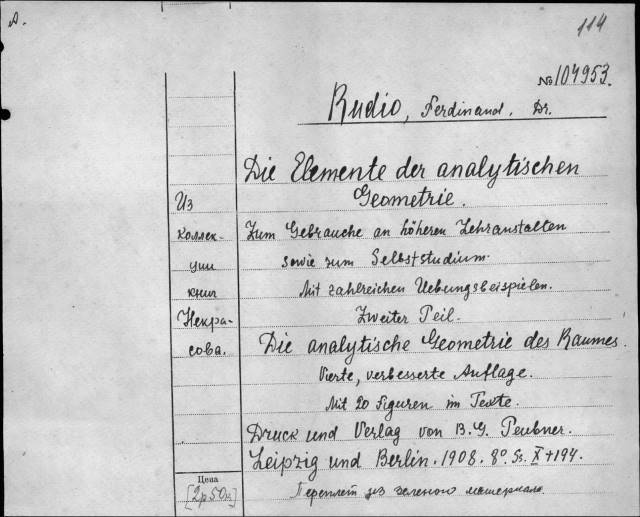 A.
114
№ 104953.
Rudio, Ferdinand. Dr.
Die Elemente der analytischen
Geometrie.
Zum Gebrauche an höheren Lehranstalten
sowie zum Selbststudium.
Mit zahlreichen Uebungsbeispielen.
Zweiter Teil.
Die analytische Geometrie des Raumes.
Vierte, verbesserte Auflage.
Mit 20 Figuren im Texte.
Druck und Verlag von B. G. Teubner.
Leipzig und Berlin. 1908. 8° Ss. X + 194.
Переплет из зеленого материала.
Из
коллек-
ции
книг
Некра-
сова.
Цена
[2 р 50 к]